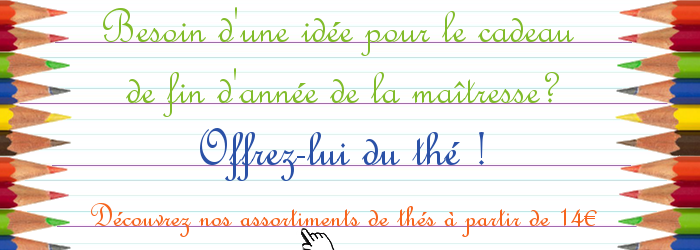 Besoin d'une idée pour le cadeau
de fin d'année de la maîtresse?
Offrez-lui du thé !
Découvrez nos assortiments de thés à partir de 14€